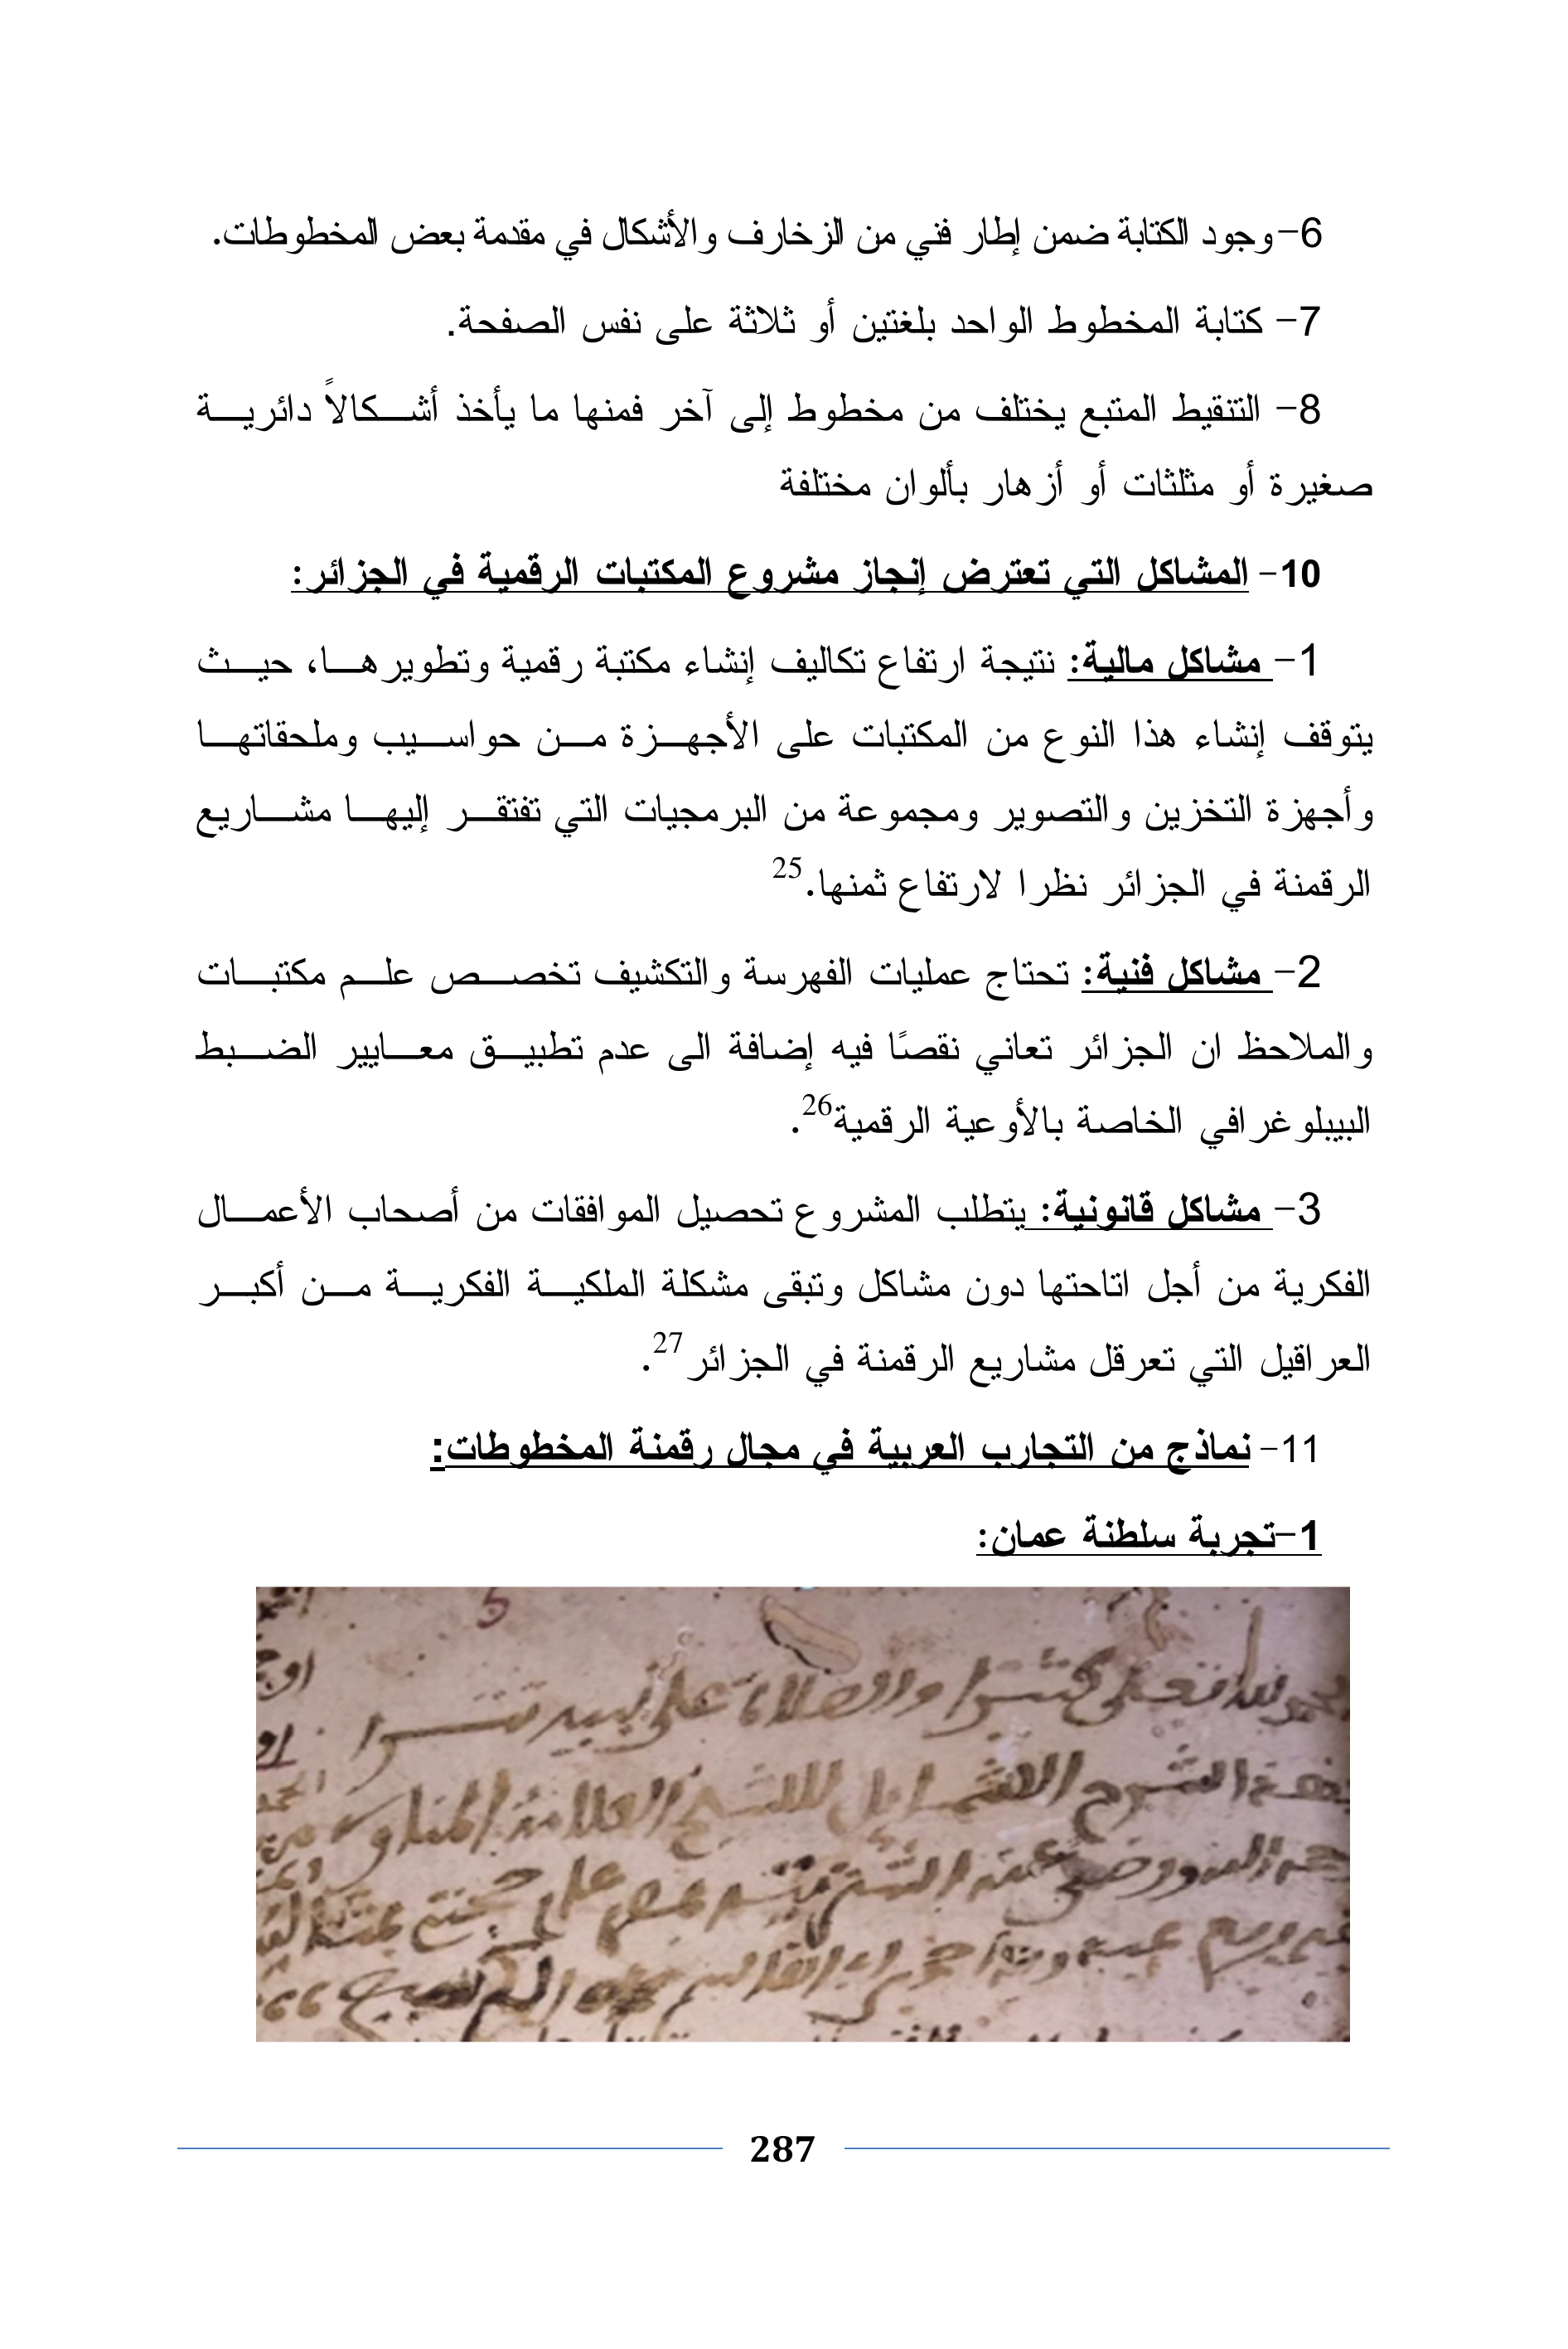 6-وجود الكتابة ضمن إطار فني من الزخارف والأشكال في مقدمة بعض المخطوطات.
7- كتابة المخطوط الواحد بلغتين أو ثلاثة على نفس الصفحة.
8- التنقيط المتبع يختلف من مخطوط إلى آخر فمنها ما يأخذ أشكالاً دائرية
صغيرة أو مثلثات أو أزهار بألوان مختلفة
10- المشاكل التي تعترض إنجاز مشروع المكتبات الرقمية في الجزائر:
1- مشاكل مالية: نتيجة ارتفاع تكاليف إنشاء مكتبة رقمية وتطويرها، حيث
يتوقف إنشاء هذا النوع من المكتبات على الأجهزة من حواسيب وملحقاتها
وأجهزة التخزين والتصوير ومجموعة من البرمجيات التي تفتقر إليها مشاريع
الرقمنة في الجزائر نظرا لارتفاع ثمنها.25
2- مشاكل فنية: تحتاج عمليات الفهرسة والتكشيف تخصص علم مكتبات
والملاحظ ان الجزائر تعاني نقصًا فيه إضافة الى عدم تطبيق معايير الضبط
البيبلوغرافي الخاصة بالأوعية الرقمية26.
3- مشاكل قانونية: يتطلب المشروع تحصيل الموافقات من أصحاب الأعمال
الفكرية من أجل اتاحتها دون مشاكل وتبقى مشكلة الملكية الفكرية من أكبر
العراقيل التي تعرقل مشاريع الرقمنة في الجزائر27.
11- نماذج من التجارب العربية في مجال رقمنة المخطوطات:
1-تجربة سلطنة عمان:
287